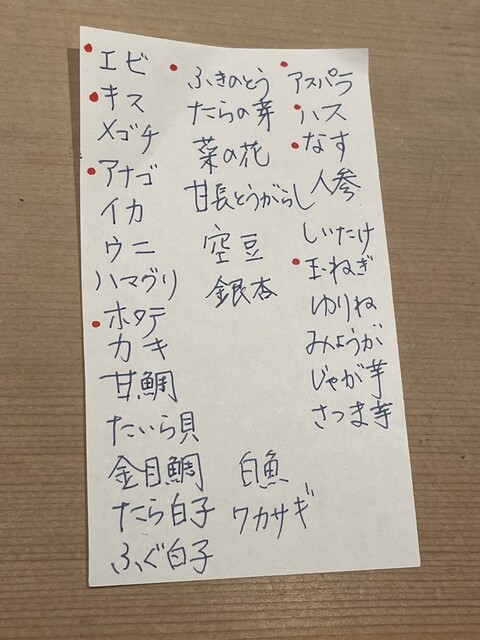 エビ
キス
メゴチ
アナゴ
イカ
ウニ
ハマグリ
ホタテ
カキ
甘鯛
たいら貝
金目鯛
たら白子
ふぐ白子
ふきのとう
たらの芽
菜の花
甘長とうがらし
空豆
銀杏
白魚
ワカサギ
アスパラ
ハス
なす
人参
しいたけ
玉ねぎ
ゆりね
みょうが
じゃが芋
さつま芋